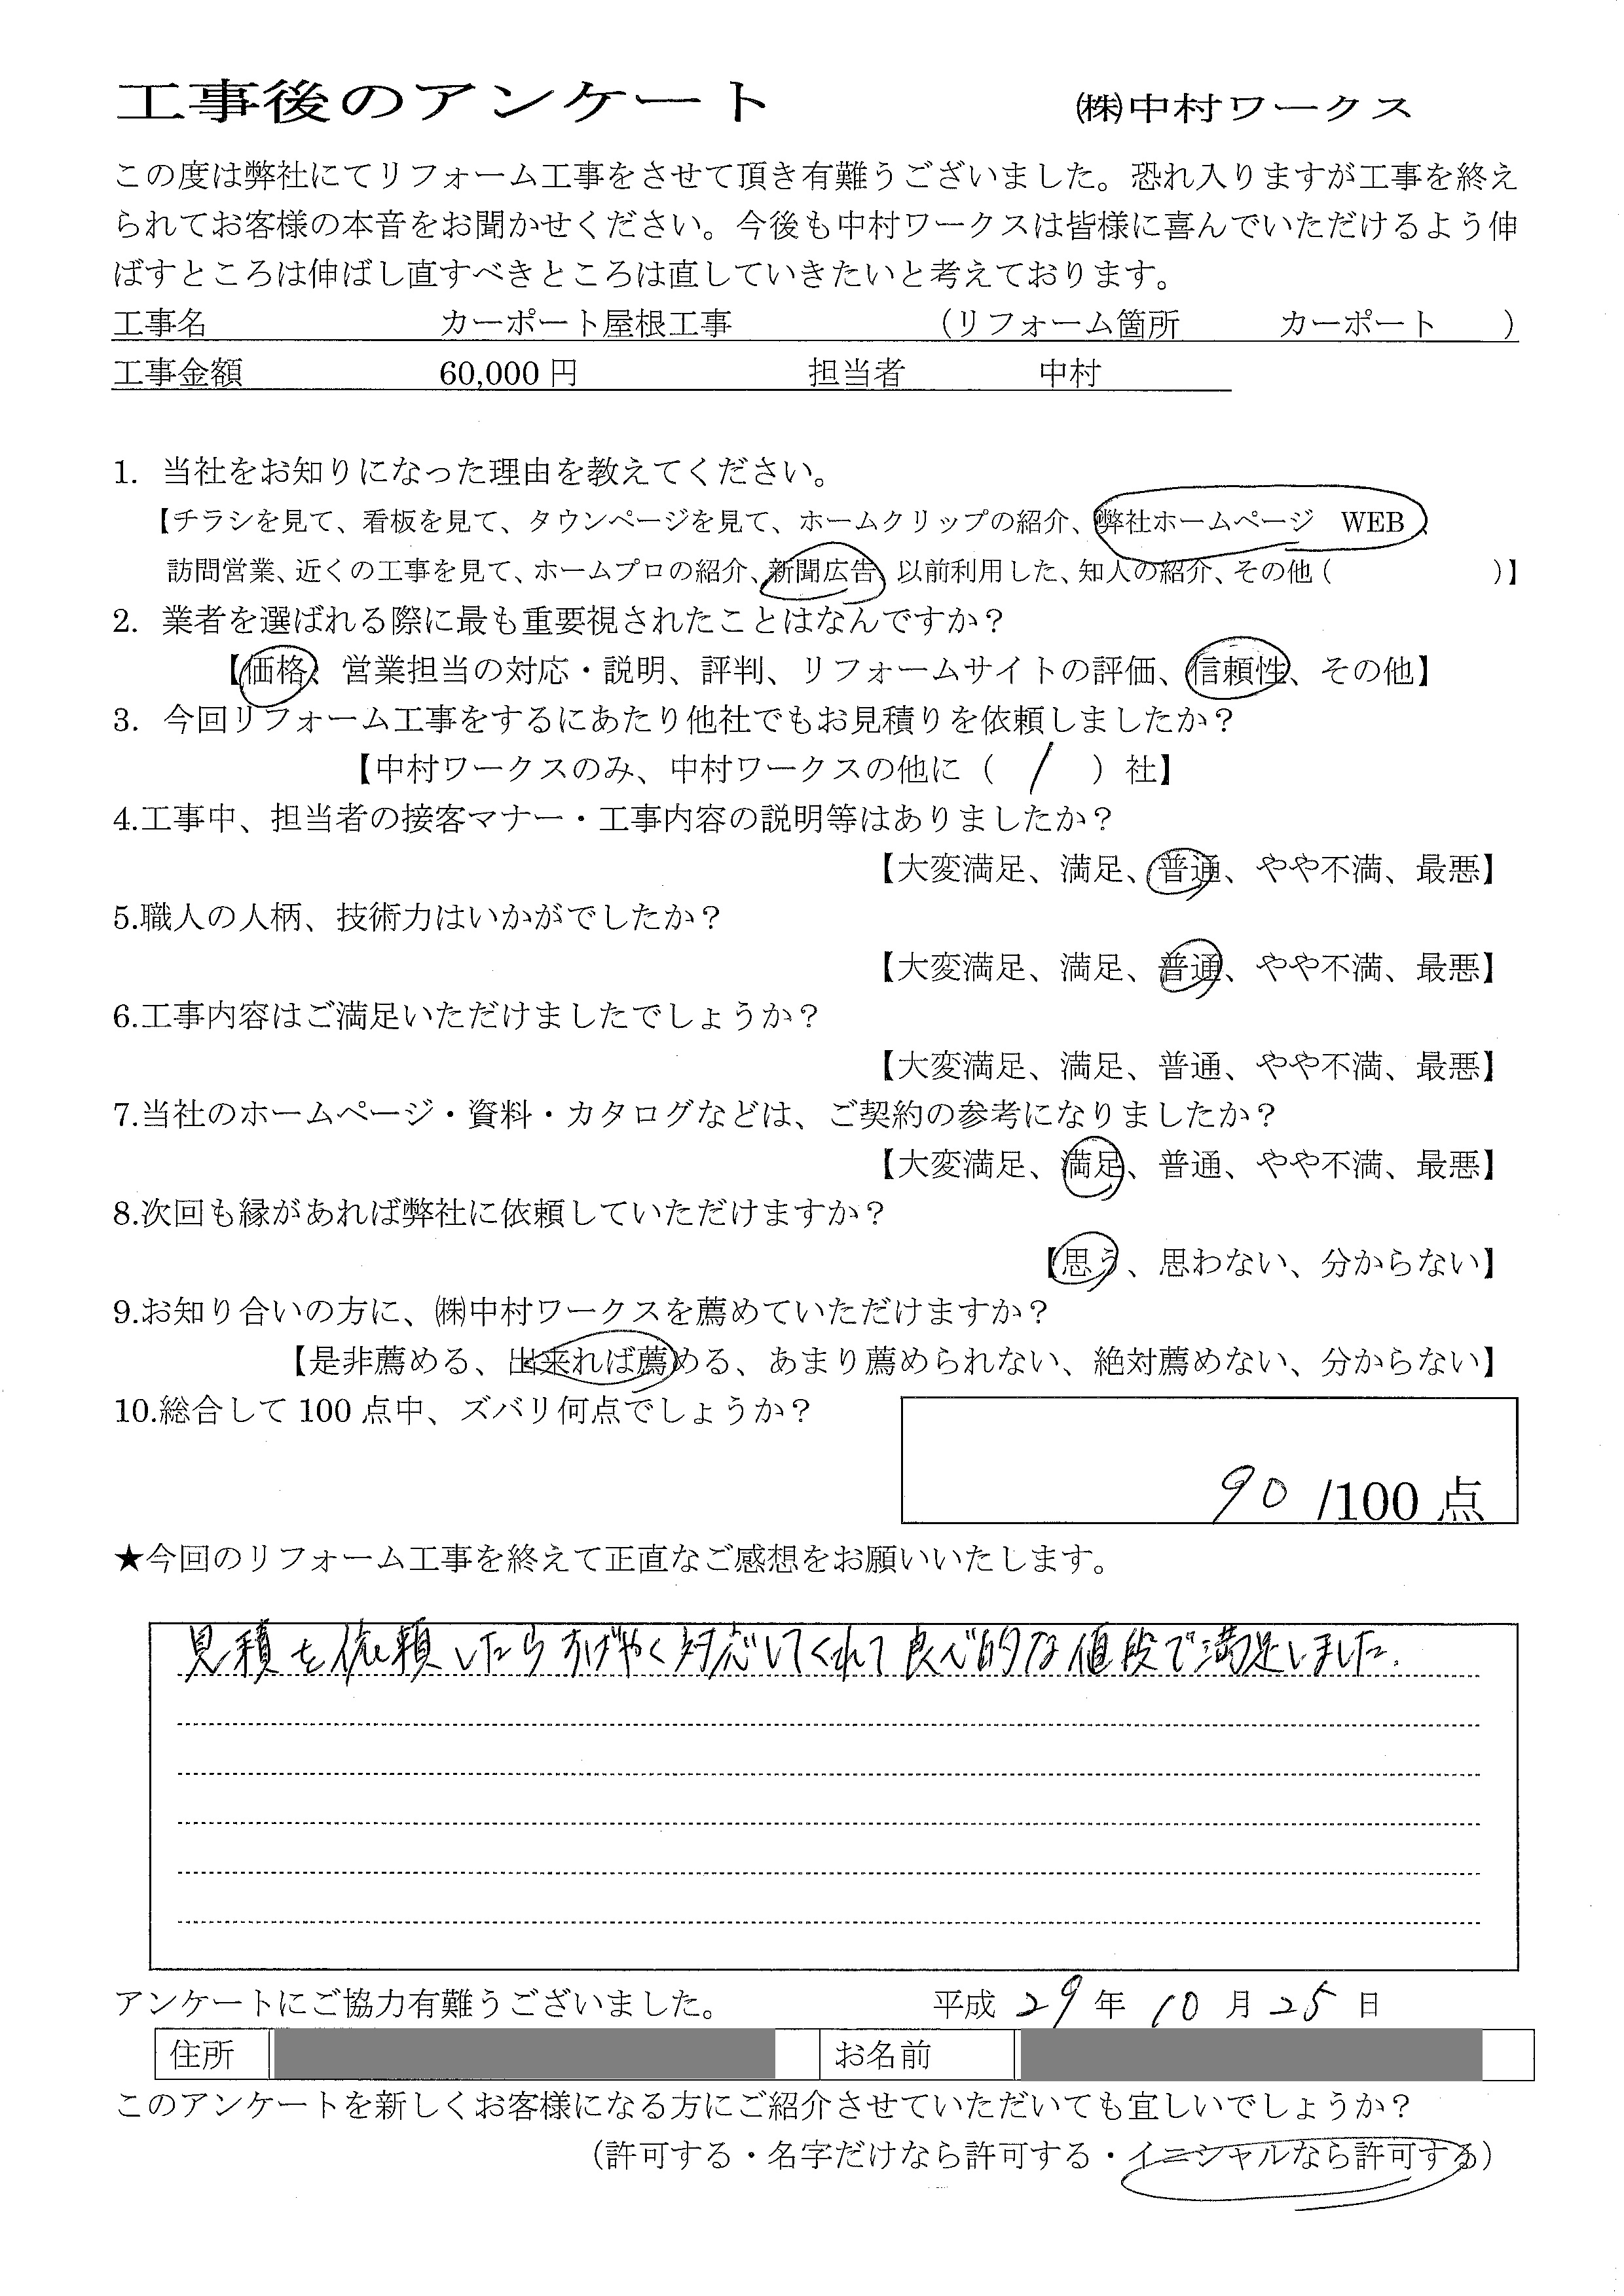 工事後のアンケート ㈱中村ワークス
この度は弊社にてリフォーム工事をさせて頂き有難うございました。恐れ入りますが工事を終え
られてお客様の本音をお聞かせください。今後も中村ワークスは皆様に喜んでいただけるよう伸
ばすところは伸ばし直すべきところは直していきたいと考えております。
工事名 カーポート屋根工事 （リフォーム箇所 カーポート ）
工事金額 60,000 円 担当者 中村
1. 当社をお知りになった理由を教えてください。
【チラシを見て、看板を見て、タウンページを見て、ホームクリップの紹介、弊社ホームページ WEB、
訪問営業、近くの工事を見て、ホームプロの紹介、新聞広告、以前利用した、知人の紹介、その他（ ）】
2. 業者を選ばれる際に最も重要視されたことはなんですか？
【価格、営業担当の対応・説明、評判、リフォームサイトの評価、信頼性、その他】
3. 今回リフォーム工事をするにあたり他社でもお見積りを依頼しましたか？
【中村ワークスのみ、中村ワークスの他に（ 1 ）社】
4.工事中、担当者の接客マナー・工事内容の説明等はありましたか？
【大変満足、満足、普通、やや不満、最悪】
5.職人の人柄、技術力はいかがでしたか？
【大変満足、満足、普通、やや不満、最悪】
6.工事内容はご満足いただけましたでしょうか？
【大変満足、満足、普通、やや不満、最悪】
7.当社のホームページ・資料・カタログなどは、ご契約の参考になりましたか？
【大変満足、満足、普通、やや不満、最悪】
8.次回も縁があれば弊社に依頼していただけますか？
【思う、思わない、分からない】
9.お知り合いの方に、㈱中村ワークスを薦めていただけますか？
【是非薦める、出来れば薦める、あまり薦められない、絶対薦めない、分からない】
10.総合して 100 点中、ズバリ何点でしょうか？
90 /100 点
★今回のリフォーム工事を終えて正直なご感想をお願いいたします。
見積を依頼したらすばやく対応してくれて良心的な値段で満足しました.
アンケートにご協力有難うございました。 平成 29 年 10 月 25 日
住所 お名前
このアンケートを新しくお客様になる方にご紹介させていただいても宜しいでしょうか？
（許可する・名字だけなら許可する・イニシャルなら許可する）